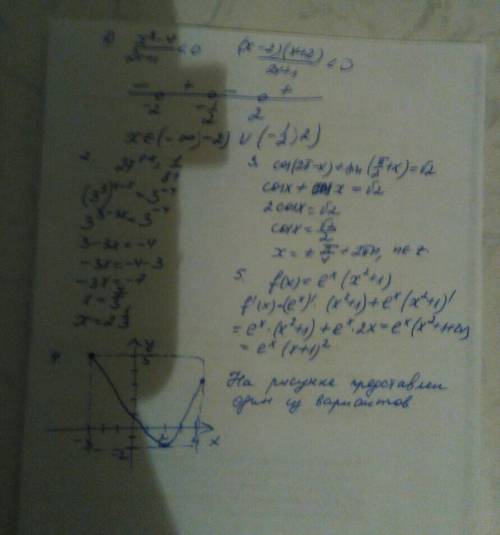 1) (x²-4)/(2x+1) < 0 ((x-2)(x+2))/(2x+1) < 0
- + - +
-2 -1/2 2
x∈(-∞;-2) ∪ (-1/2;2)
2.
(3³)¹⁻ˣ = 3⁻⁴
3³⁻³ˣ = 3⁻⁴
3-3x = -4
-3x = -4-3
-3x = -7
3. cos(2π-x)+sin(π/2+x)=√2
cosx + cosx = √2
2cosx = √2
cosx = √2/2
x = ± π/4 + 2πn, n∈z
5. f(x) = eˣ (x²+1)
f'(x)=(eˣ)' (x²+1)+eˣ(x²+1)'
= eˣ·(x²+1) + eˣ·2x = eˣ(x²+1+2x)
= eˣ (x+1)²
4.
5
-2
x
На рисунке представлен
один из вариантов